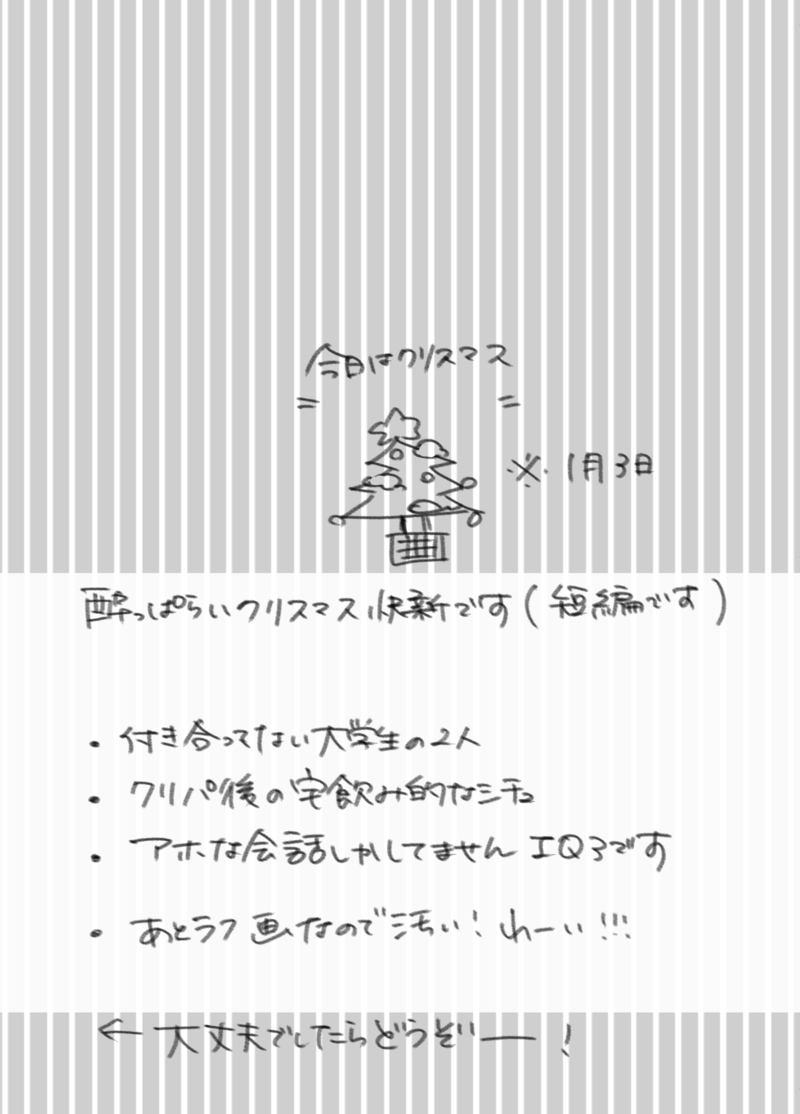 今日はクリスマス
※1月3日
酔っぱらいクリスマス快新です(短編です)
・付き合ってない大学生の2人
・クリパ後の宅飲み的なシチュ
・アホな会話しかしてません IQ3です
・あとラフ画なので汚い！わーい!!!
← 大丈夫でしたらどうぞー！